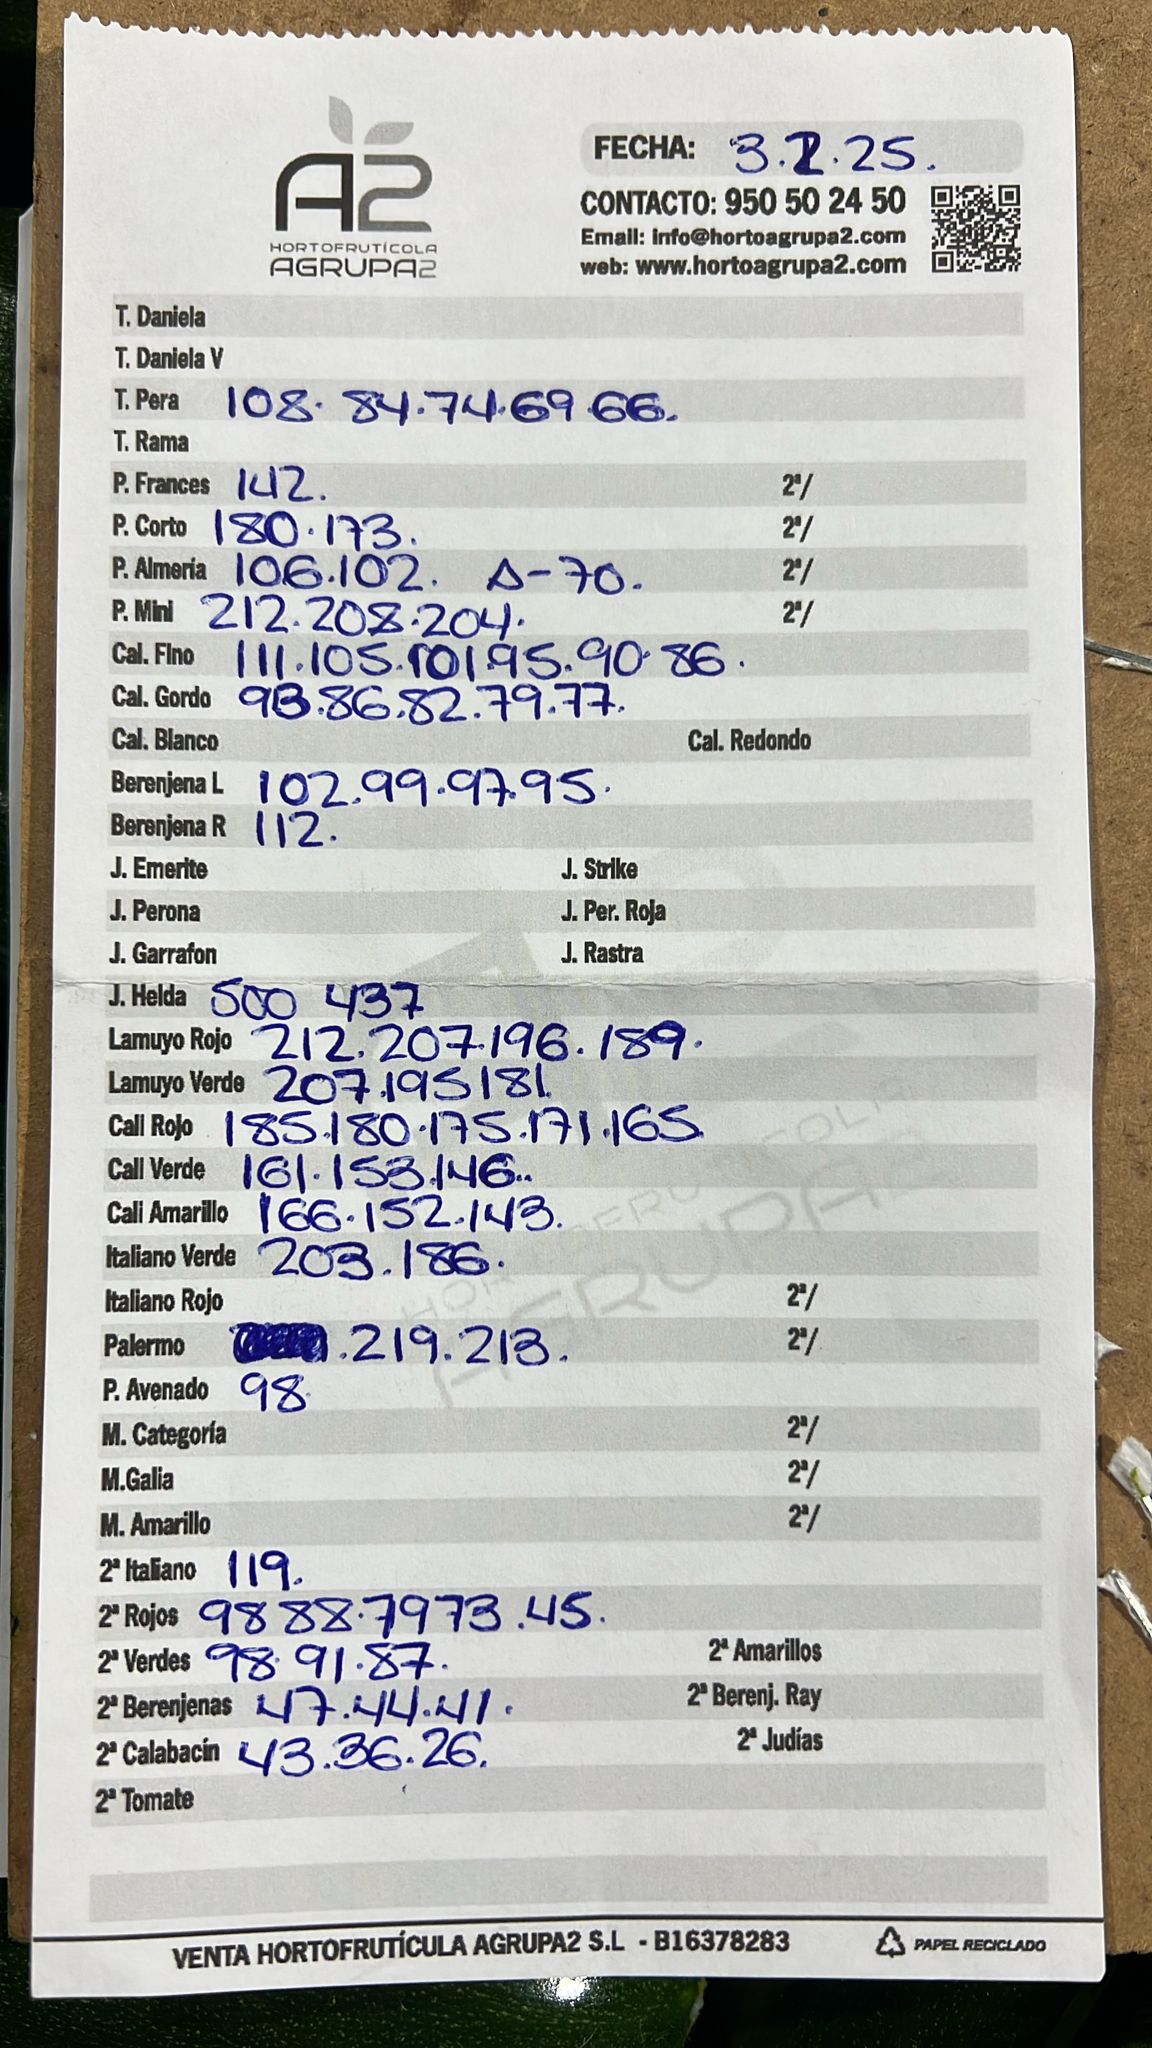 A2
HORTOFRUTÍCOLA
AGRUPA2
FECHA: 3.2.25.
CONTACTO: 950 50 24 50
Email: info@hortoagrupa2.com
web: www.hortoagrupa2.com
T. Daniela
T. Daniela V
T. Pera 108. 84.74.69.66.
T. Rama
P. Frances 142. 2ª/
P. Corto 180.173. 2ª/
P. Almería 106.102. Δ-70. 2ª/
P. Mini 212.208.204. 2ª/
Cal. Fino 111.105.101.95.90.86.
Cal. Gordo 93.86.82.79.77.
Cal. Blanco Cal. Redondo
Berenjena L 102.99.97.95.
Berenjena R 112.
J. Emerite J. Strike
J. Perona J. Per. Roja
J. Garrafon J. Rastra
J. Helda 500 437
Lamuyo Rojo 212.207.196.189.
Lamuyo Verde 207.195181.
Cali Rojo 185.180.175.171.165.
Cali Verde 161.153.146..
Cali Amarillo 166.152.143.
Italiano Verde 203.186.
Italiano Rojo 2ª/
Palermo .219.213. 2ª/
P. Avenado 98.
M. Categoría 2ª/
M.Galia 2ª/
M. Amarillo 2ª/
2ª Italiano 119.
2ª Rojos 98 88.79 73.45.
2ª Verdes 98.91.87. 2ª Amarillos
2ª Berenjenas 47.44.41. 2ª Berenj. Ray
2ª Calabacín 43.36.26. 2ª Judías
2ª Tomate
VENTA HORTOFRUTÍCULA AGRUPA2 S.L - B16378283 PAPEL RECICLADO